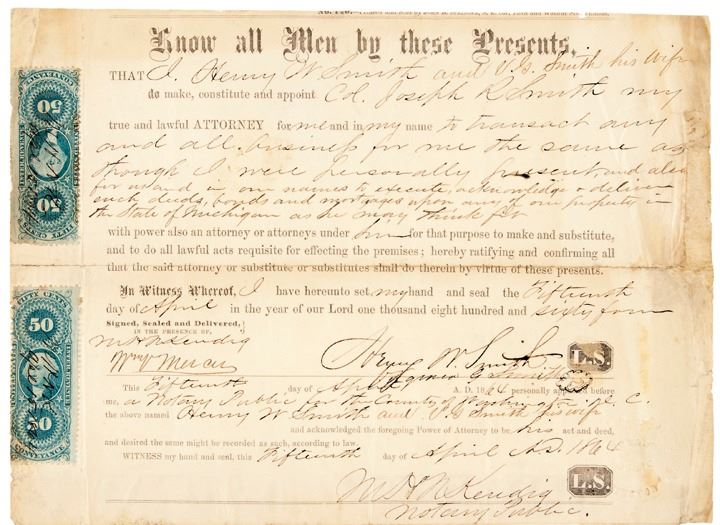 Know all Men by these Presents,
THAT I, Henry W Smith and V. G. Smith his wife
do make, constitute and appoint Col. Joseph R Smith my
true and lawful ATTORNEY for me and in my name to transact any
and all business for me the same as
though I were personally present, and also
for us and in our names to execute, acknowledge & deliver
such deeds, bonds and mortgages upon any of our property in
the State of Michigan as he may think fit
with power also an attorney or attorneys under him for that purpose to make and substitute,
and to do all lawful acts requisite for effecting the premises; hereby ratifying and confirming all
that the said attorney or substitute or substitutes shall do therein by virtue of these presents.
In Witness Whereof, I have hereunto set, my hand and seal the Fifteenth
day of April in the year of our Lord one thousand eight hundred and sixty four
Signed, Sealed and Delivered,
IN THE PRESENCE OF,
M H N Kendig
Wm Mercer
Henry W. Smith L.S.
Smith
This Fifteenth day of April A. D. 1864 personally appeared before
me, a Notary Public for the County of Washington D. C.
the above named Henry W Smith and V. G Smith his wife
and acknowledged the foregoing Power of Attorney to be his act and deed,
and desired the same might be recorded as such, according to law.
WITNESS my hand and seal, this Fifteenth day of April A.D. 1864
L.S.
M H N Kendig
Notary Public.
50
CONVEYANCE
INTER. REVENUE
50
FIFTY CENTS
FIFTY CENTS
50
INTER. REVENUE
50
CONVEYANCE